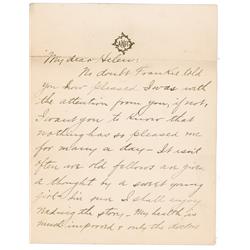 My dear Helen:
No doubt Frankie told
you how pleased I was with
the attention from you, if not,
I want you to know that
nothing has so pleased me
for many a day - It isn't
often we old fellows are given
a thought by a sweet young
girl - his own I shall enjoy
reading the story. My health is
much improved & only the doctor